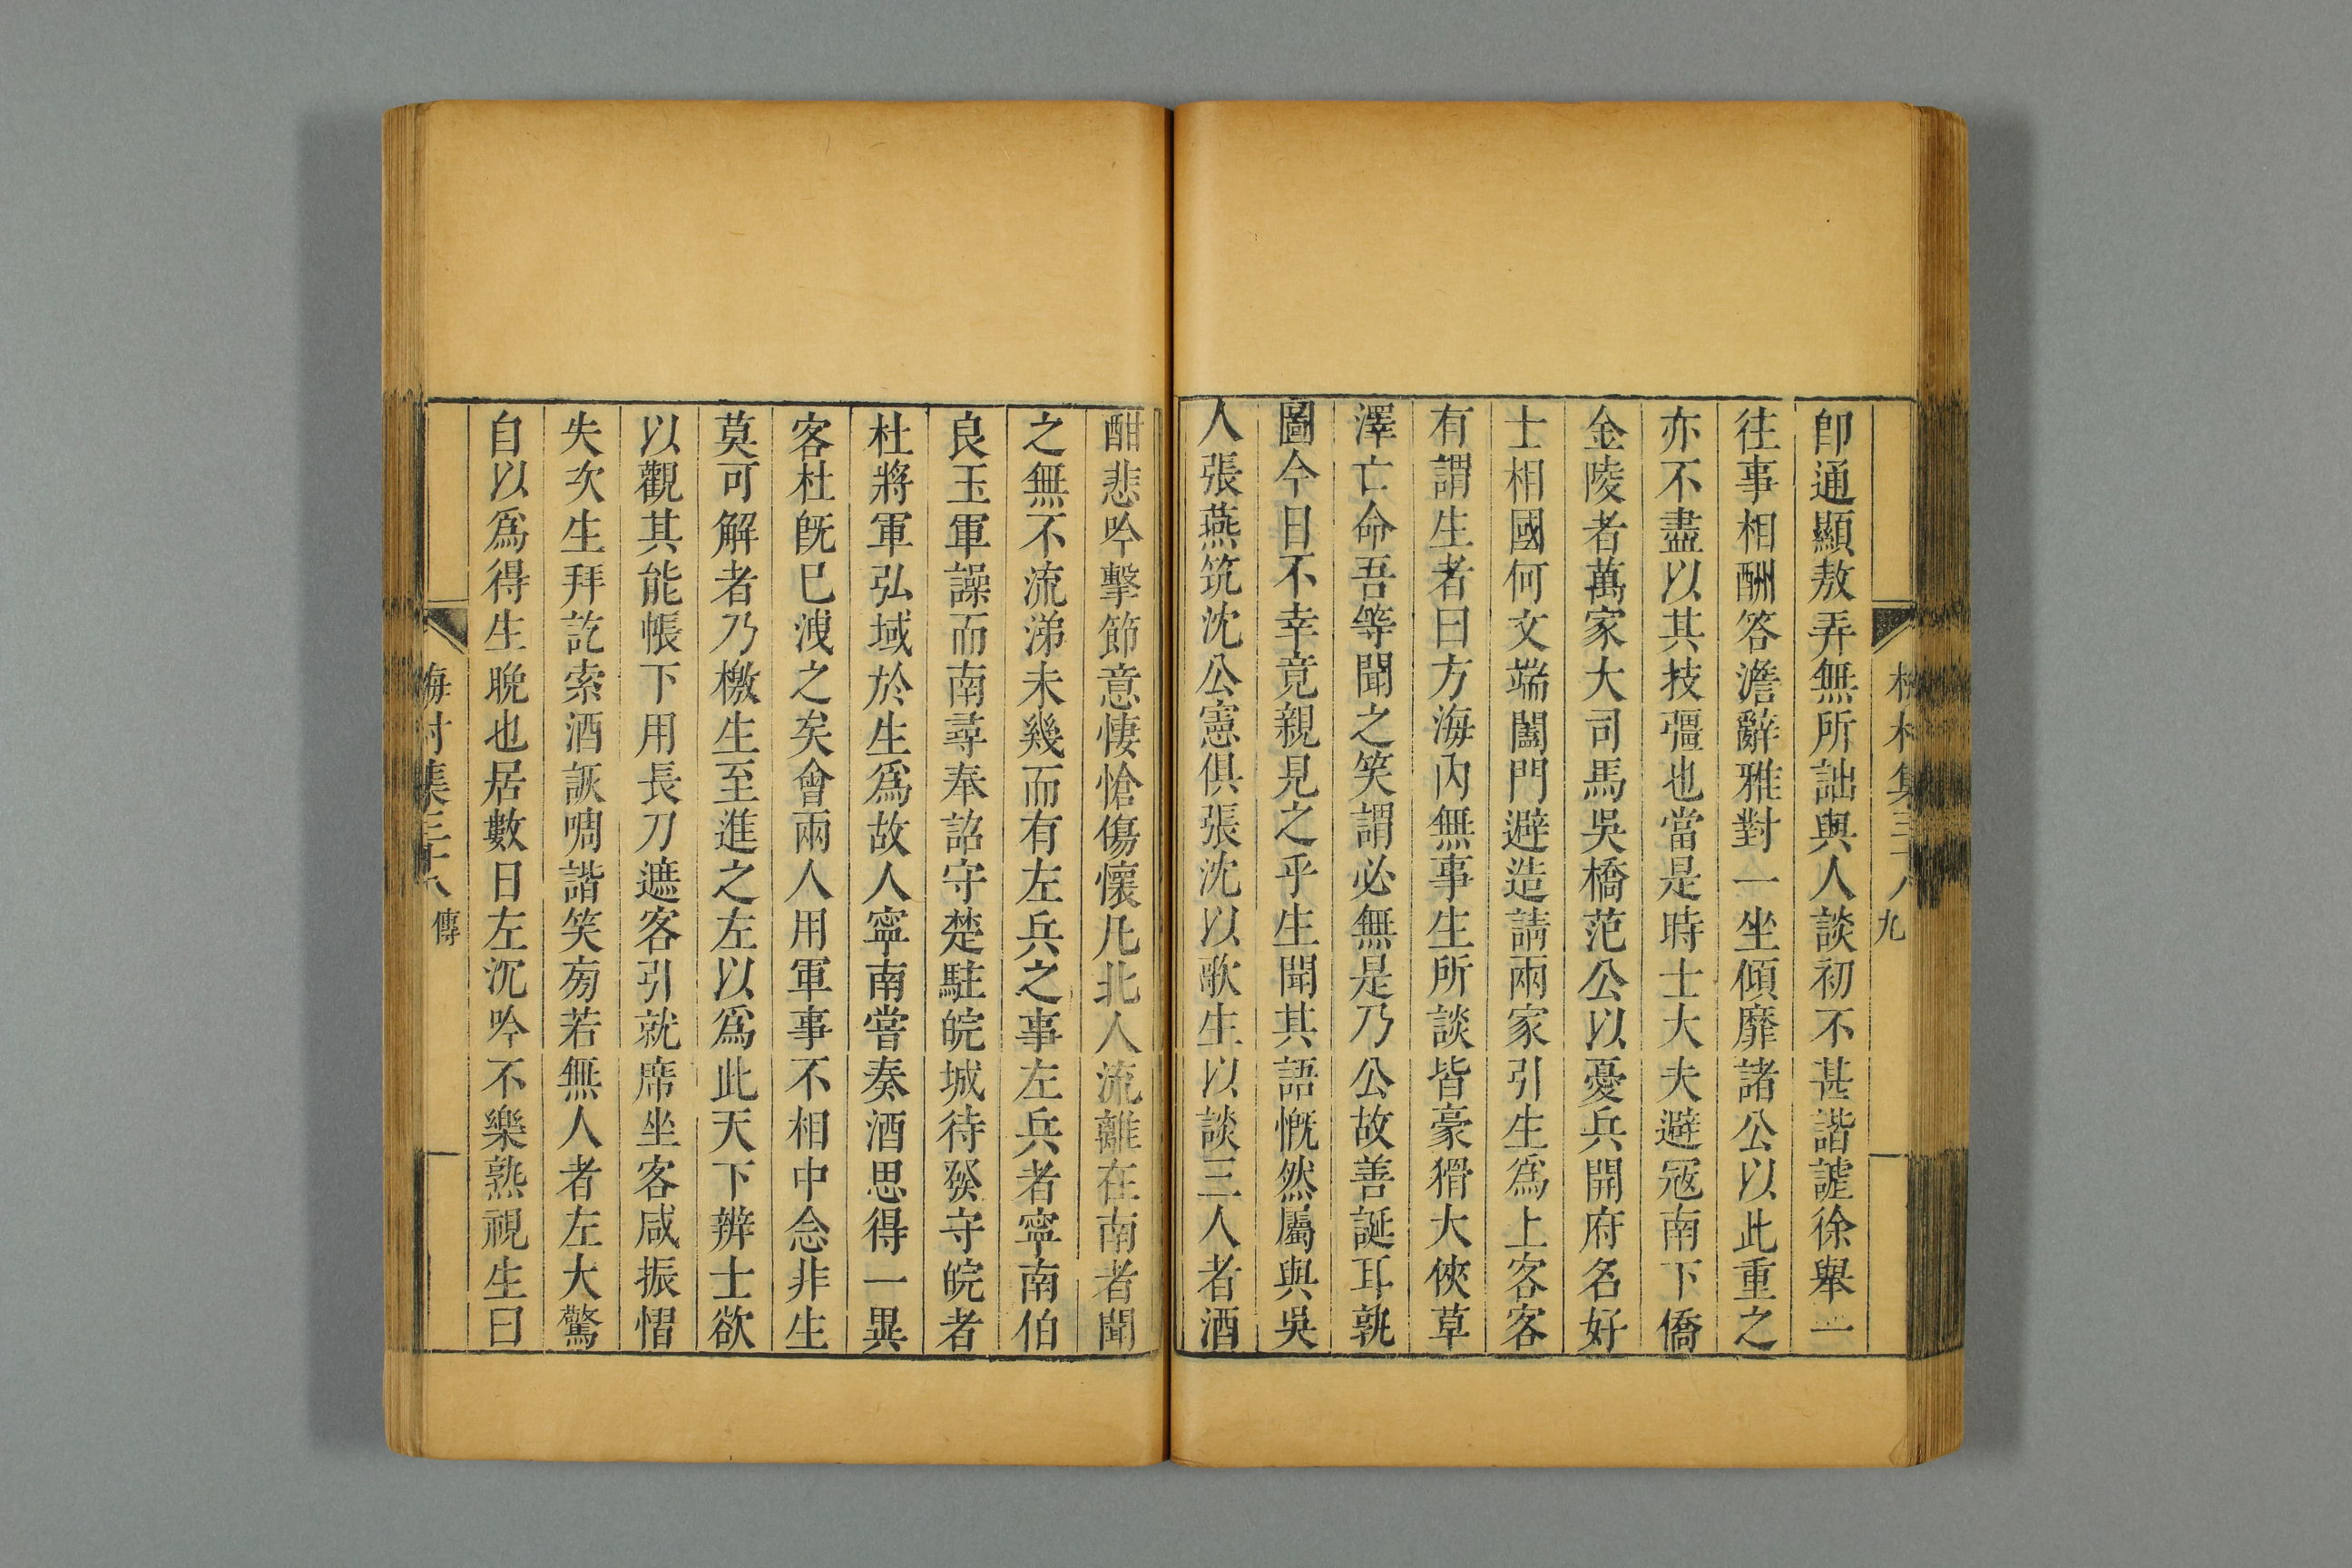 梅村集三十八
九
卽通顯敖弄無所詘與人談初不甚諧謔徐舉一
往事相酬答澹辭雅對一坐傾靡諸公以此重之
亦不盡以其技彊也當是時士大夫避寇南下僑
金陵者萬家大司馬吳橋范公以憂兵開府名好
士相國何文端闔門避造請兩家引生爲上客客
有謂生者曰方海內無事生所談皆豪猾大俠草
澤亡命吾等聞之笑謂必無是乃公故善誕耳孰
圖今日不幸竟親見之乎生聞其語慨然屬與吳
人張燕筑沈公憲俱張沈以歌生以談三人者酒
酣悲吟擊節意悽愴傷懷凡北人流離在南者聞
之無不流涕未幾而有左兵之事左兵者寧南伯
良玉軍譟而南尋奉詔守楚駐皖城待發守皖者
杜將軍弘域於生爲故人寧南嘗奏酒思得一異
客杜既已洩之矣會兩人用軍事不相中念非生
莫可解者乃檄生至進之左以爲此天下辨士欲
以觀其能帳下用長刀遮客引就席坐客咸振慴
失次生拜訖索酒詼啁諧笑旁若無人者左大驚
自以爲得生晚也居數日左沉吟不樂熟視生曰
梅村集三十八
傳